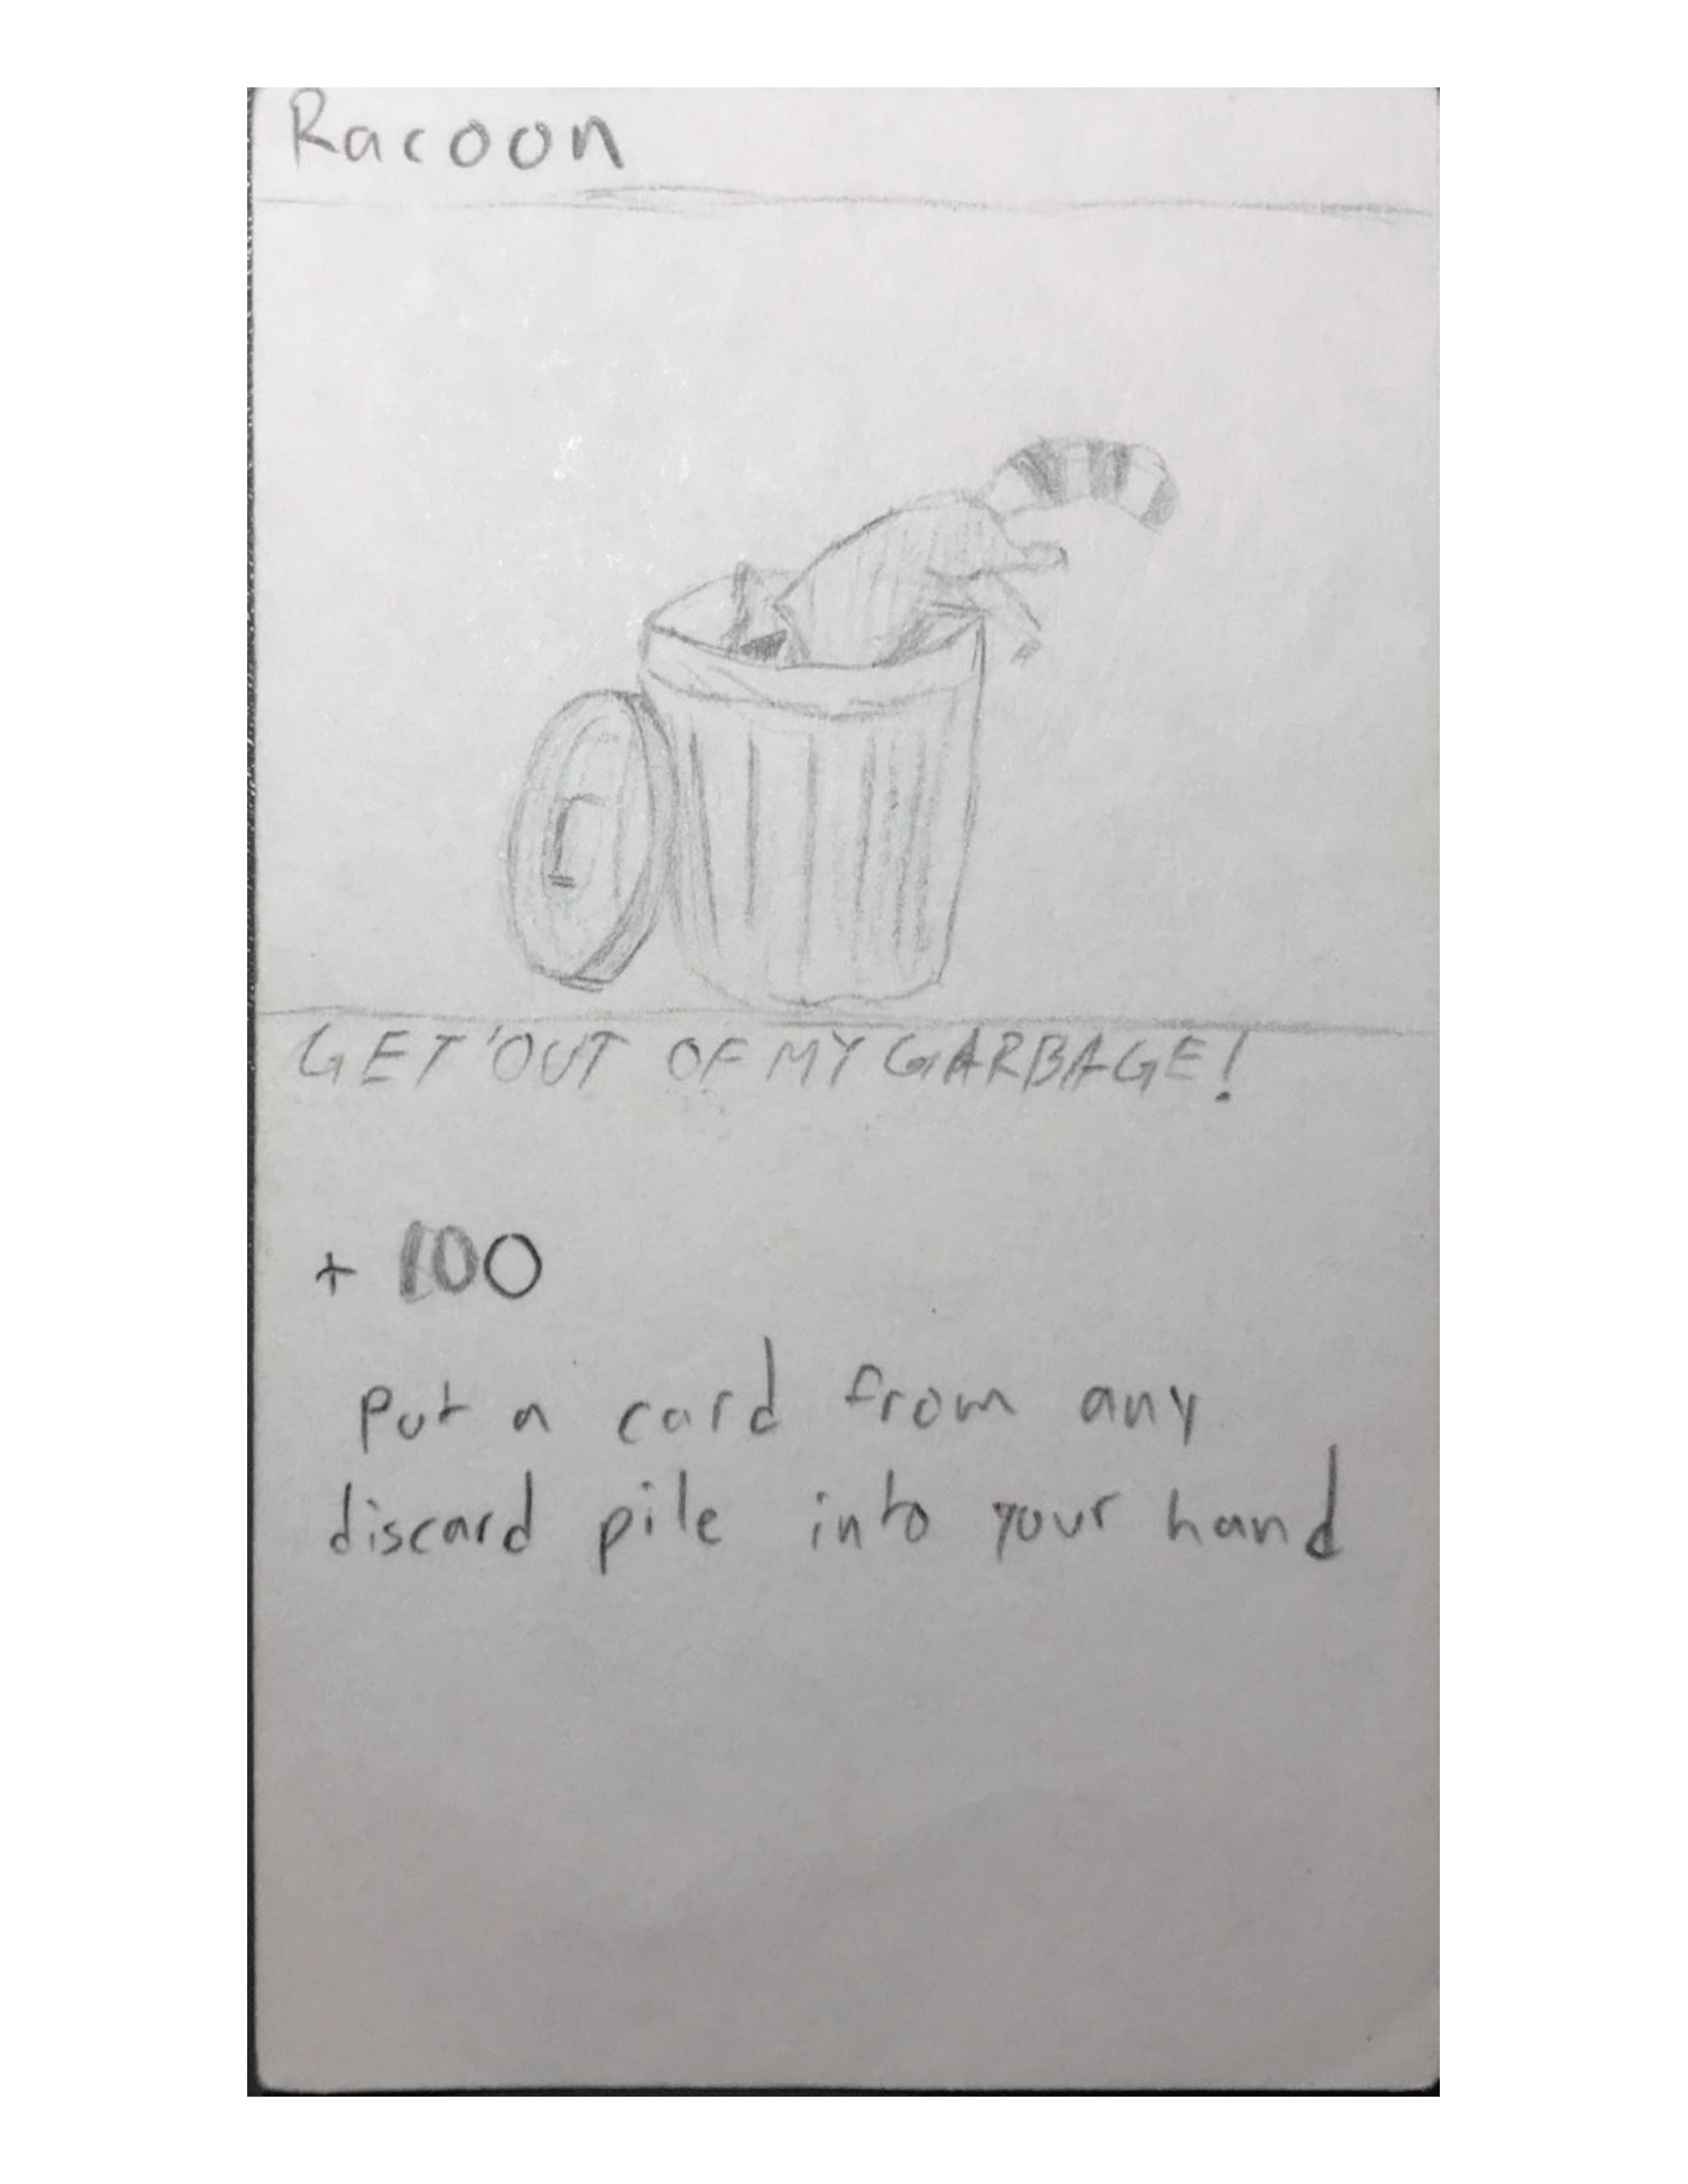 Racoon
GET 'OUT OF MY GARBAGE!
+ 100
Put a card from any
discard pile into your hand